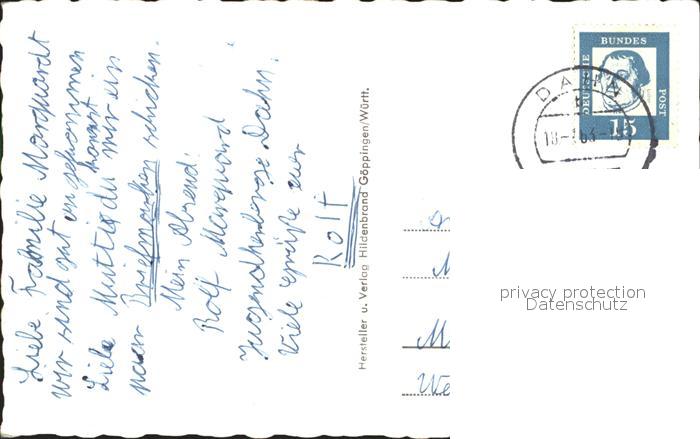 Liebe Familie Marquardt
wir sind gut angekommen
Liebe Mutti du kannst mir ein
paar Briefmarken schicken.
Mein Absend:
Rolf Marquard
Jugendherberge Dahn.
Viele Grüße euer
Rolf
Hersteller u. Verlag Hildenbrand Göppingen/Württ.
BUNDES
DEUTSCHE
POST
15
DAHN
privacy protection
Datenschutz